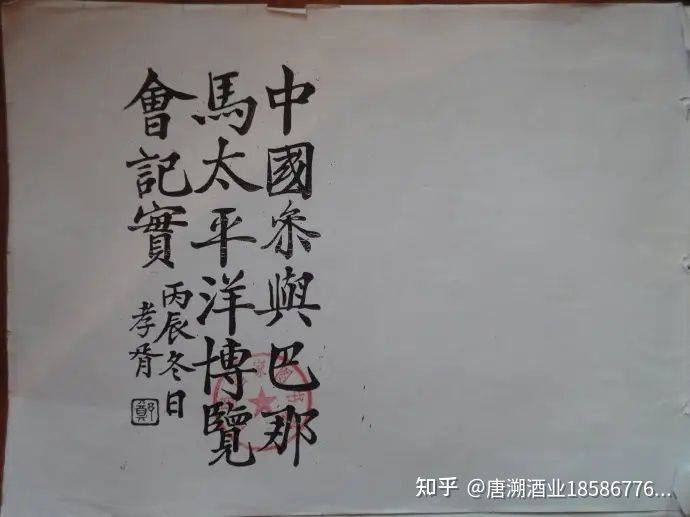 中國參與巴那
馬太平洋博覽
會記實
丙辰冬日
孝胥
鄭
知乎 @唐溯酒业18586776...